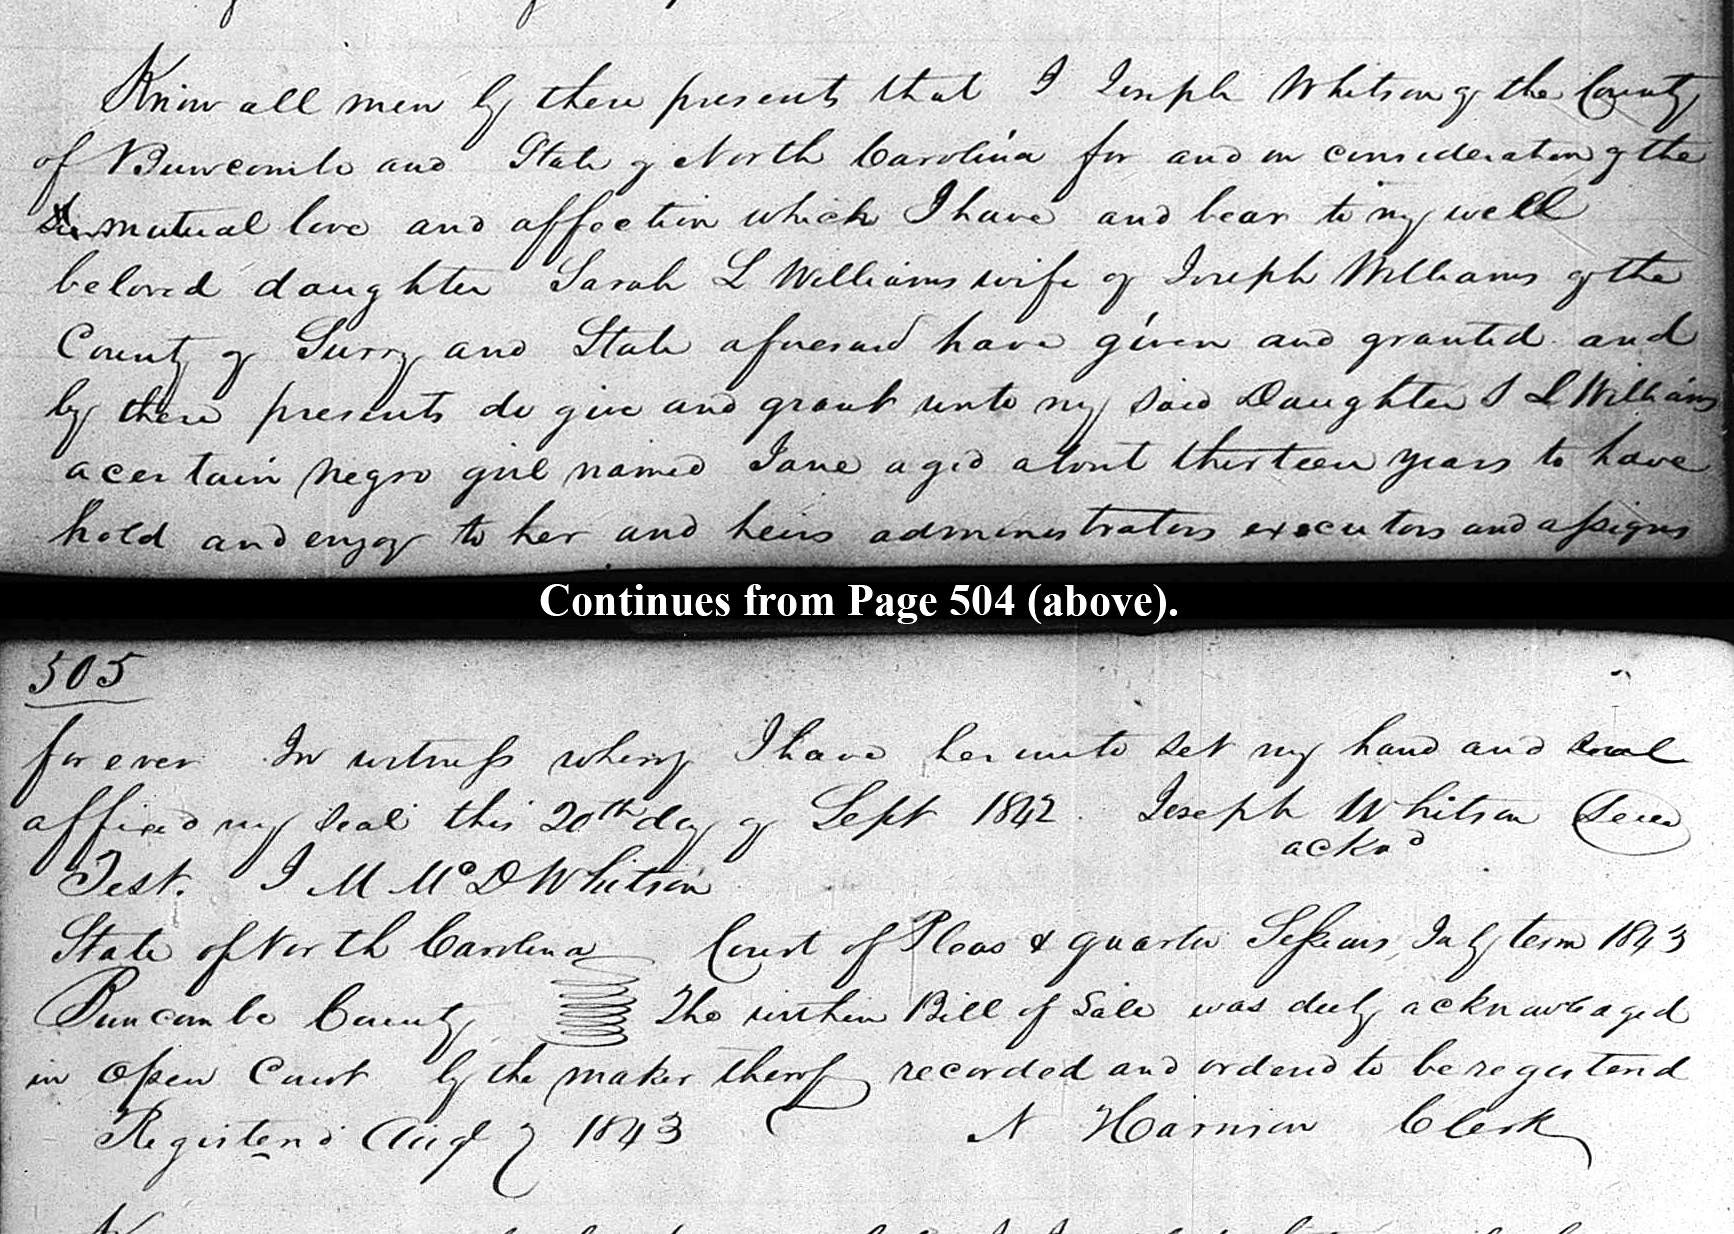 Know all men by these presents that I Joseph Whitson of the County
of Buncombe and State of North Carolina for and in consideration of the
mutual love and affection which I have and bear to my well
beloved daughter Sarah L Williams wife of Joseph Williams of the
County of Surry and State aforesaid have given and granted and
by these presents do give and grant unto my said Daughter S L Williams
a certain Negro girl named Jane aged about thirteen years to have
hold and enjoy to her and heirs administrators executors and assigns
Continues from Page 504 (above).
505
forever In witness whereof I have hereunto set my hand and
affixed my seal this 20th day of Sept 1842. Joseph Whitson Seal
acknd
Test. J M McD Whitson
State of North Carolina Court of Pleas & quarter Sessions July term 1843
Buncombe County The within Bill of Sale was duly acknowledged
in open Court by the maker thereof recorded and ordered to be registered
Registered Aug 7 1843 N Harrison Clerk